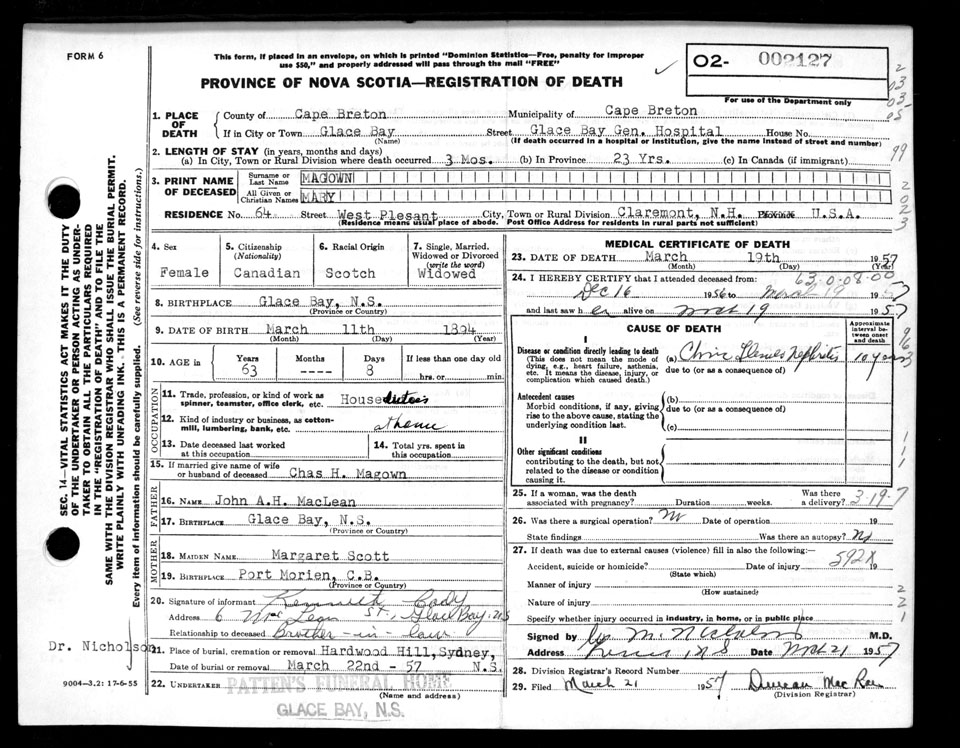 FORM 6
This form, if placed in an envelope, on which is printed "Dominion Statistics—Free, penalty for improper
use $50," and properly addressed will pass through the mail "FREE"
PROVINCE OF NOVA SCOTIA—REGISTRATION OF DEATH
02- 002127
For use of the Department only
1. PLACE OF DEATH
County of Cape Breton Municipality of Cape Breton
If in City or Town Glace Bay (Name) Street Glace Bay Gen. Hospital House No.
(If death occurred in a hospital or institution, give the name instead of street and number)
2. LENGTH OF STAY (in years, months and days)
(a) In City, Town or Rural Division where death occurred 3 Mos. (b) In Province 23 Yrs. (c) In Canada (if immigrant)
3. PRINT NAME OF DECEASED
Surname or Last Name MAGOWN
All Given or Christian Names MARY
RESIDENCE No. 64 Street West Plesant City, Town or Rural Division Claremont, N.H. U.S.A.
(Residence means usual place of abode. Post Office Address for residents in rural parts not sufficient)
4. Sex Female
5. Citizenship (Nationality) Canadian
6. Racial Origin Scotch
7. Single, Married, Widowed or Divorced (write the word) Widowed
8. BIRTHPLACE Glace Bay, N.S.
(Province or Country)
9. DATE OF BIRTH March 11th 1894
(Month) (Day) (Year)
10. AGE in Years 63 Months ---- Days 8 If less than one day old hrs. or min.
OCCUPATION
11. Trade, profession, or kind of work as spinner, teamster, office clerk, etc. House duties
12. Kind of industry or business, as cotton-mill, lumbering, bank, etc. at home
13. Date deceased last worked at this occupation
14. Total yrs. spent in this occupation
15. If married give name of wife or husband of deceased Chas H. Magown
FATHER
16. NAME John A.H. MacLean
17. BIRTHPLACE Glace Bay, N.S.
(Province or Country)
MOTHER
18. MAIDEN NAME Margaret Scott
19. BIRTHPLACE Port Morien, C.B.
(Province or Country)
20. Signature of informant Kenneth Cody
Address 6 MacLean St., Glace Bay, N.S
Relationship to deceased Brother-in-law
21. Place of burial, cremation or removal Hardwood Hill, Sydney,
Date of burial or removal March 22nd - 57 N.S.
22. UNDERTAKER PATTEN'S FUNERAL HOME
(Name and address)
GLACE BAY, N.S.
MEDICAL CERTIFICATE OF DEATH
23. DATE OF DEATH March 19th 1957
(Month) (Day) (Year)
24. I HEREBY CERTIFY that I attended deceased from:
63-0-08-00
Dec 16 1956 to March 19 1957
and last saw her alive on March 19 1957
CAUSE OF DEATH
Approximate interval between onset and death
I
Disease or condition directly leading to death
(This does not mean the mode of dying, e.g., heart failure, asthenia, etc. It means the disease, injury, or complication which caused death.)
(a) Nephritis 10 years
due to (or as a consequence of)
Antecedent causes
Morbid conditions, if any, giving rise to the above cause, stating the underlying condition last.
(b)
due to (or as a consequence of)
(c)
II
Other significant conditions
contributing to the death, but not related to the disease or condition causing it.
25. If a woman, was the death associated with pregnancy? Duration weeks. Was there a delivery? 3-19-7
26. Was there a surgical operation? No Date of operation 19
State findings Was there an autopsy? No
27. If death was due to external causes (violence) fill in also the following:
Accident, suicide or homicide? Date of injury 19
(State which)
592X
Manner of injury
(How sustained)
Nature of injury
Specify whether injury occurred in industry, in home, or in public place
Signed by M.D.
Address N S Date Mch 21 1957
28. Division Registrar's Record Number
29. Filed March 21 1957 Duncan MacRae
(Division Registrar)
SEC. 14—VITAL STATISTICS ACT MAKES IT THE DUTY
OF THE UNDERTAKER OR PERSON ACTING AS UNDER-
TAKER TO OBTAIN ALL THE PARTICULARS REQUIRED
IN THE "REGISTRATION OF DEATH" AND TO FILE THE
SAME WITH THE DIVISION REGISTRAR WHO SHALL ISSUE THE BURIAL PERMIT.
WRITE PLAINLY WITH UNFADING INK. THIS IS A PERMANENT RECORD.
Every item of information should be carefully supplied. (See reverse side for instructions.)
Dr. Nicholson
9004-3.2: 17-6-55